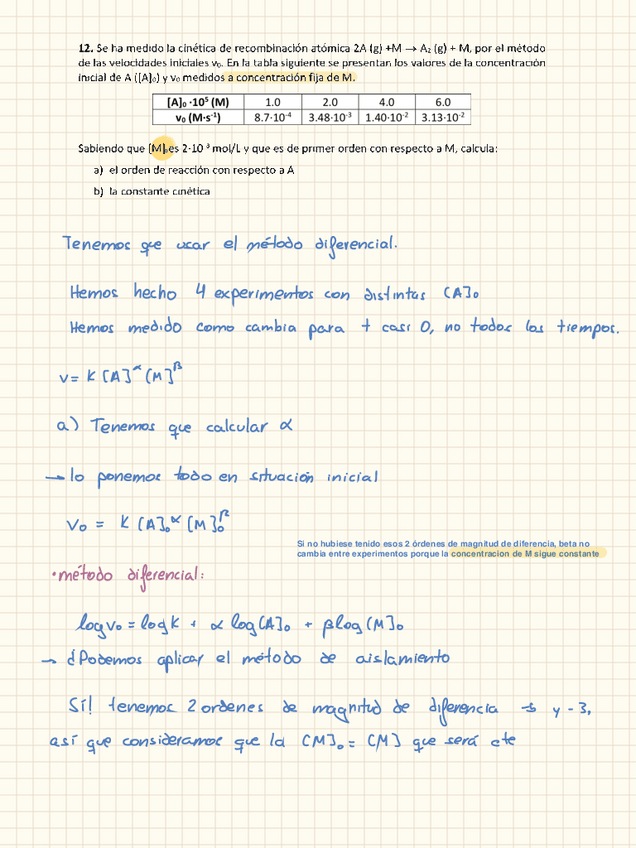 12. Se ha medido la cinética de recombinación atómica 2A (g) +M → A₂ (g) + M, por el método
de las velocidades iniciales v₀. En la tabla siguiente se presentan los valores de la concentración
inicial de A ([A]₀) y v₀ medidos a concentración fija de M.
[A]₀ ·10⁵ (M) 1.0 2.0 4.0 6.0
v₀ (M·s⁻¹) 8.7·10⁻⁴ 3.48·10⁻³ 1.40·10⁻² 3.13·10⁻²
Sabiendo que [M]₀es 2·10⁻³ mol/L y que es de primer orden con respecto a M, calcula:
a) el orden de reacción con respecto a A
b) la constante cinética
Tenemos que usar el método diferencial.
Hemos hecho 4 experimentos con distintas [A]₀
Hemos medido como cambia para t casi 0, no todos los tiempos.
v = K [A]^α [M]^β
a) Tenemos que calcular α
→ lo ponemos todo en situación inicial
v₀ = K [A]₀^α [M]₀^β
Si no hubiese tenido esos 2 órdenes de magnitud de diferencia, beta no
cambia entre experimentos porque la concentracion de M sigue constante
• método diferencial:
log v₀ = log K + α log [A]₀ + β log [M]₀
→ ¿Podemos aplicar el método de aislamiento
Sí! tenemos 2 ordenes de magnitud de diferencia → y -3,
así que consideramos que la [M]₀ = [M] que será cte